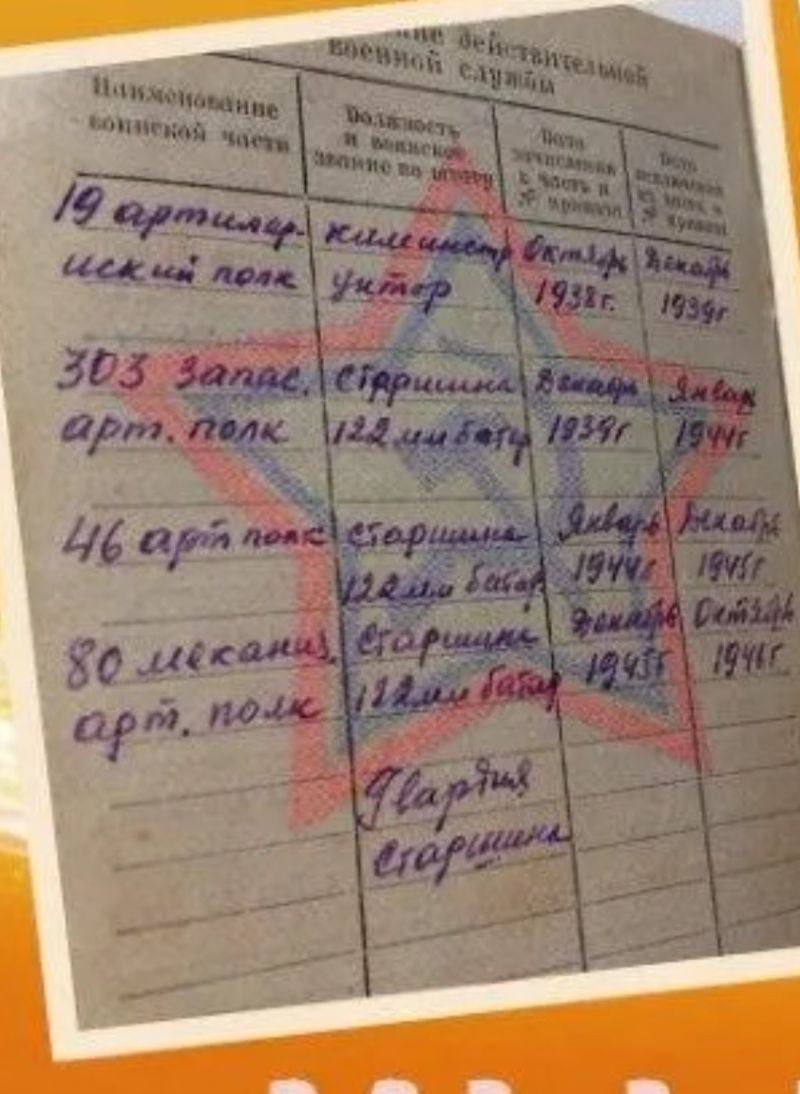 действительной
военной службы
Наименование
воинской части
Должность
и воинское
звание по штату
Дата
зачисления
в часть и
№ приказа
Дата
исключения
из части и
№ приказа
19 артилер- Октябрь Декабрь
иский полк 1938г. 1939г
303 запас. Старшина Декабрь Январ
арт. полк 122 мм батар 1939г 1944г
46 арт полк старшина Январь Декабрь
122 мм батар 1944г 1945г
80 механиз. Старшина Декабрь Октябрь
арт. полк 122 мм батар 1945г 1946г
Гвардия
старшина